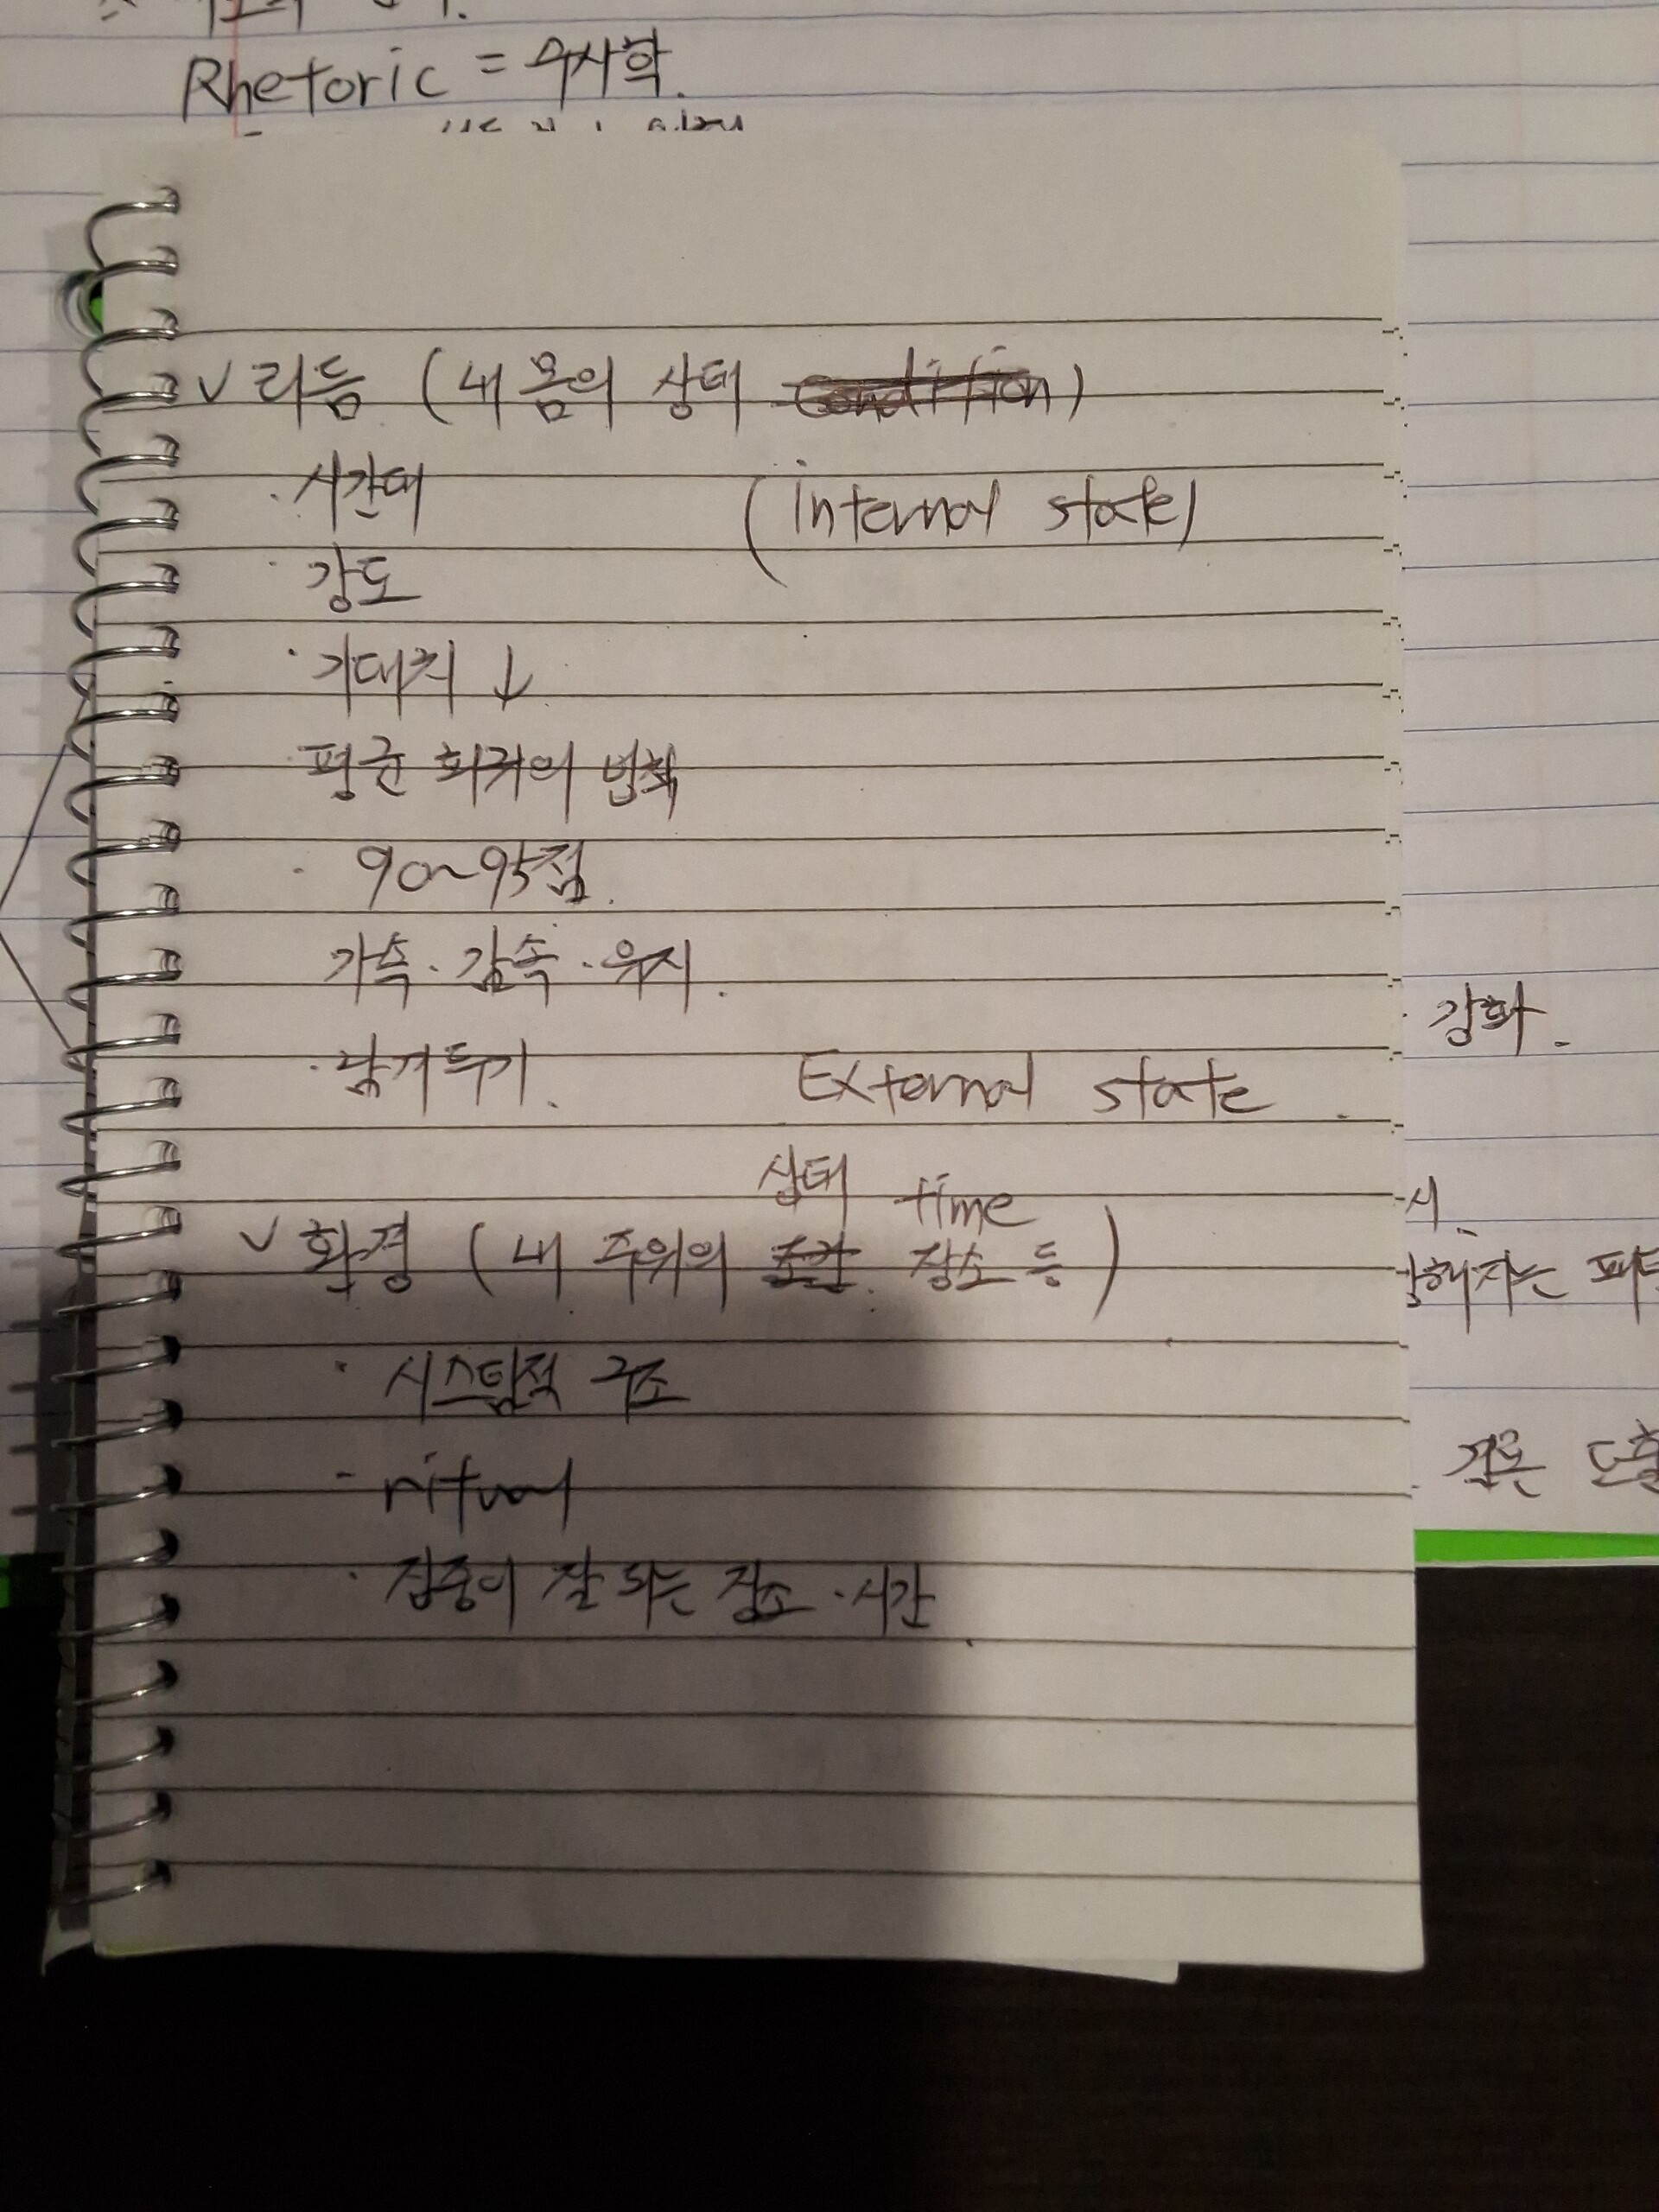 Rhetoric = 수사학.
✓ 리듬 (내 몸의 상태 condition)
· 시간대 (internal state)
· 강도
· 기대치 ↓
평균 회귀의 법칙
· 90~95점.
가속 · 감속 · 유지.
· 남겨두기.
External state.
상태 time
✓ 환경 (내 주위의 조건. 장소 등)
· 시스템적 구조
- ritual
· 집중이 잘 되는 장소 · 시간.
강화.
시.
해지는